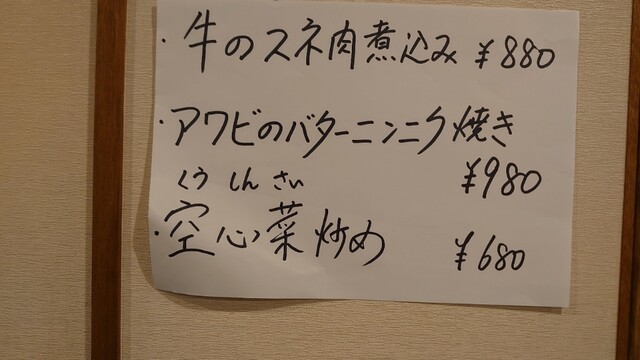 ・牛のスネ肉煮込み ¥880
・アワビのバターニンニク焼き
¥980
くうしんさい
・空心菜炒め ¥680